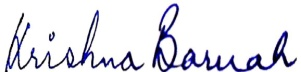 Krishna Baruah